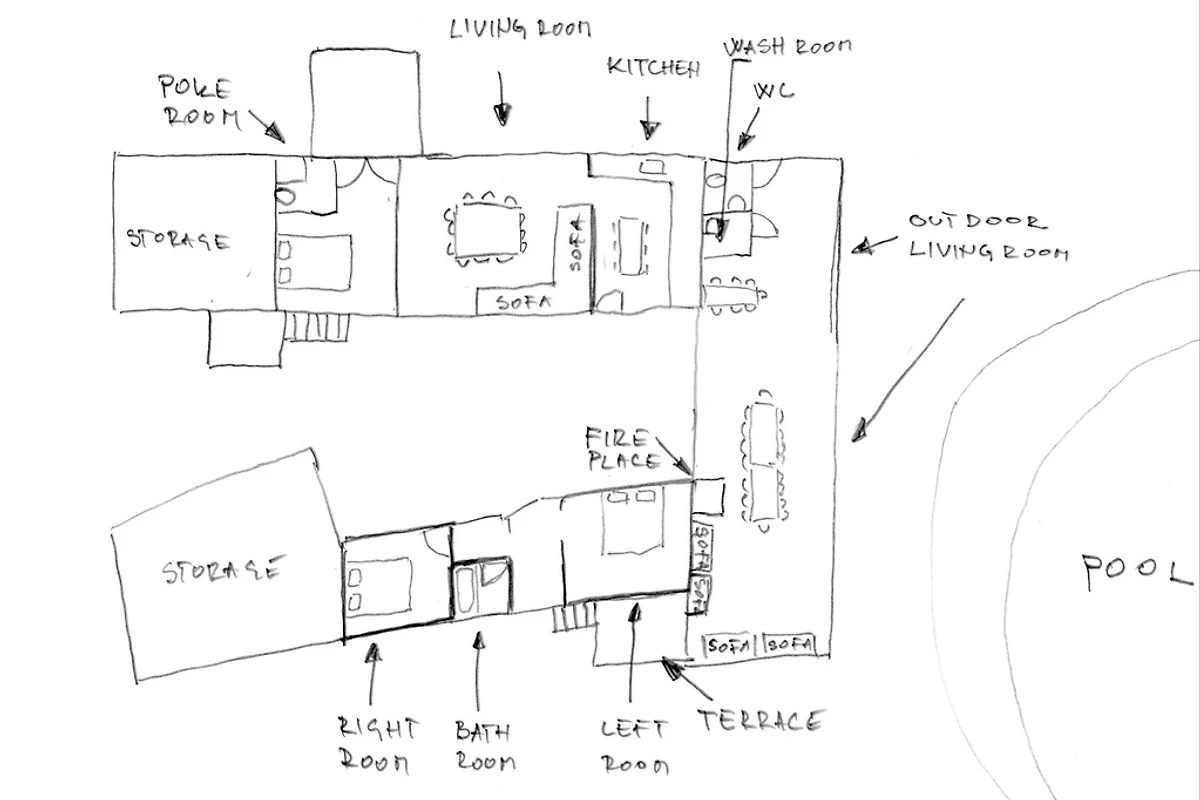 LIVING ROOM
WASH ROOM
KITCHEN
WC
POKE
ROOM
OUTDOOR
LIVING ROOM
STORAGE
SOFA
SOFA
FIRE
PLACE
SOFA
SOFA
STORAGE
POOL
SOFA
SOFA
RIGHT
ROOM
BATH
ROOM
LEFT
ROOM
TERRACE